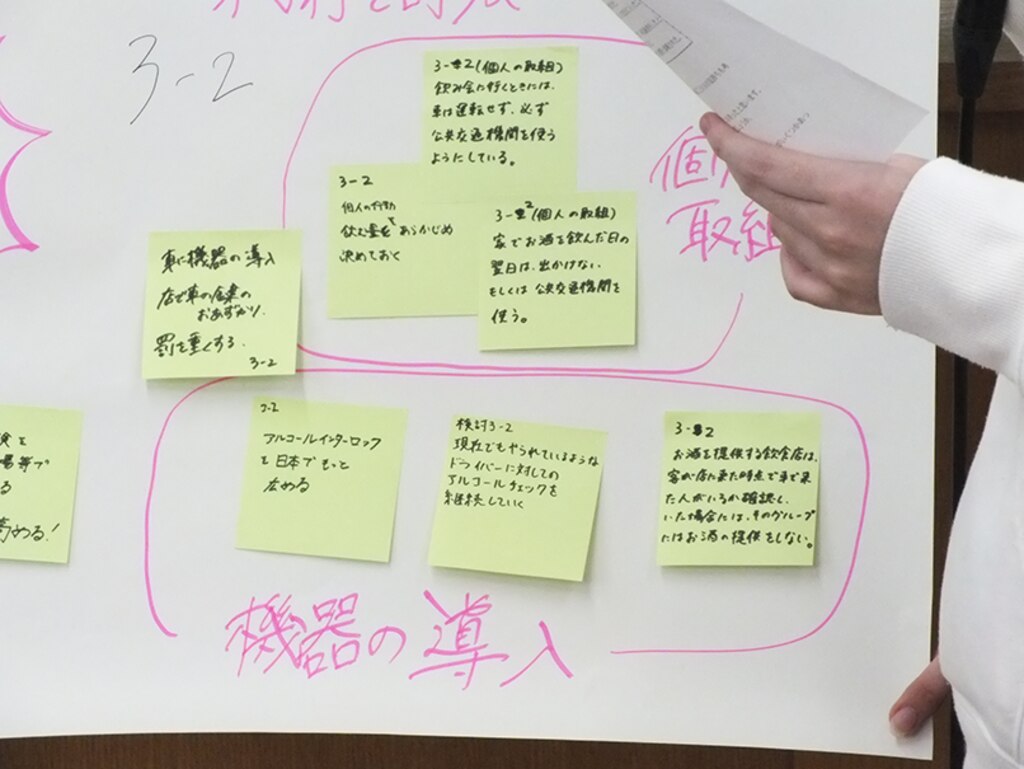 3-2
3-2(個人の取組)
飲み会に行くときには、
車は運転せず、必ず
公共交通機関を使う
ようにしている。
3-2
個人の行動
飲む量をあらかじめ
決めておく
3-2(個人の取組)
家でお酒を飲んだ日の
翌日は、出かけない
もしくは公共交通機関を
使う。
個
取組
車に機器の導入
店で車の
おあずかり、
罰を重くする。
3-2
3-2
アルコールインターロック
を日本でもっと
広める
検討3-2
現在でもやられているような
ドライバーに対しての
アルコールチェックを
継続していく
3-2
お酒を提供する飲食店は、
客が店に来た時点で車で来
た人がいるか確認し、
いた場合には、そのグループ
にはお酒の提供をしない。
場等で
る
高める!
機器の導入